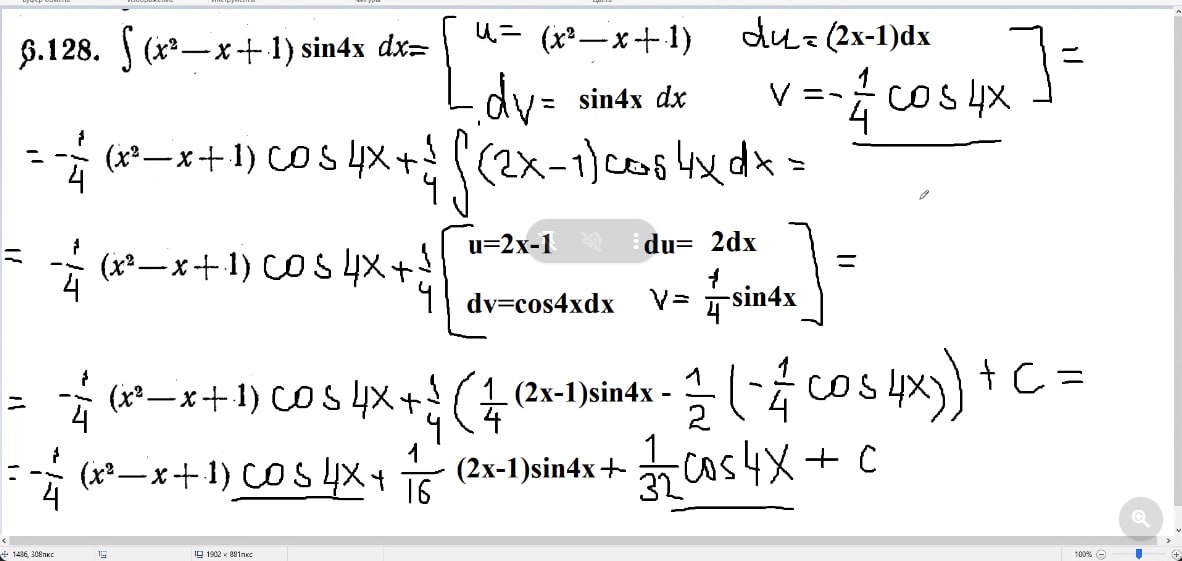 6.128. ∫ (x² − x + 1) sin4x dx= [ u= (x² − x + 1) du = (2x-1)dx ] =
dv = sin4x dx v = -1/4 cos 4x
= -1/4 (x² − x + 1) cos 4x + 1/4 ∫ (2x-1) cos 4x dx =
= -1/4 (x² − x + 1) cos 4x + 1/4 [ u=2x-1 du= 2dx ] =
dv=cos4xdx v = 1/4 sin4x
= -1/4 (x² − x + 1) cos 4x + 1/4 ( 1/4 (2x-1)sin4x - 1/2 (-1/4 cos 4x)) + c =
= -1/4 (x² − x + 1) cos 4x + 1/16 (2x-1)sin4x + 1/32 cos 4x + c
1486, 308пкс 1902 × 881пкс 100%